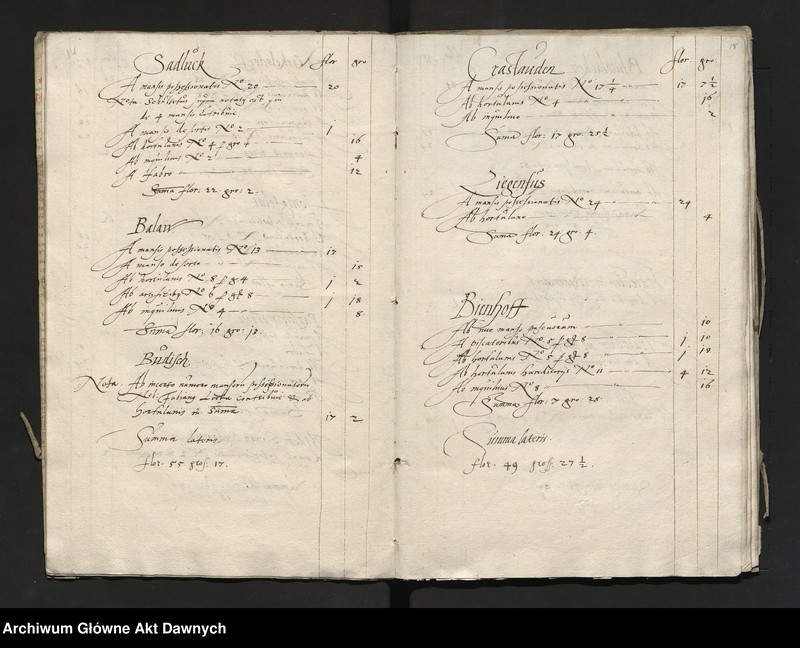 Sadluck flor gro
A mansis possessionatis No 20 20
Nota
de 4 mansis
A manso deserto No 2 1
Ab hortulanis No 4 p gr 4 16
Ab inquilinis No 2 4
A fabro 12
Suma flor: 22 gro: 2.
Balaw
A mansis possessionatis No 13 13
A manso deserto 15
Ab hortulanis No 8 p g 4 1 2
Ab artificibus No 6 p g 8 1 18
Ab inquilinis No 4 8
Suma flor: 16 gro: 13.
Budisch
Nota Ab incerto numero mansorum possessionatorum
et ab
hortulanis in Suma 17 2
Summa lateris
flor. 55 gros. 17.
18
Crastauden flor gro
A mansis possessionatis No 17 1/4 17 7 1/2
Ab hortulanis No 4 16
Ab inquilino 2
Suma flor: 17 gro: 25 1/2
Ziegenfus
A mansis possessionatis No 24 24
Ab hortulano 4
Suma flor: 24 gro: 4.
Bienhoff
Ab uno manso 10
A piscatoribus No 5 p g 8 1 10
Ab hortulanis No 5 p g 8 1 18
Ab hortulanis No 11 4 12
Ab inquilinis No 8 16
Summa flor: 7 gro: 28
Summa lateris.
flor. 49 gross. 27 1/2.
Archiwum Główne Akt Dawnych